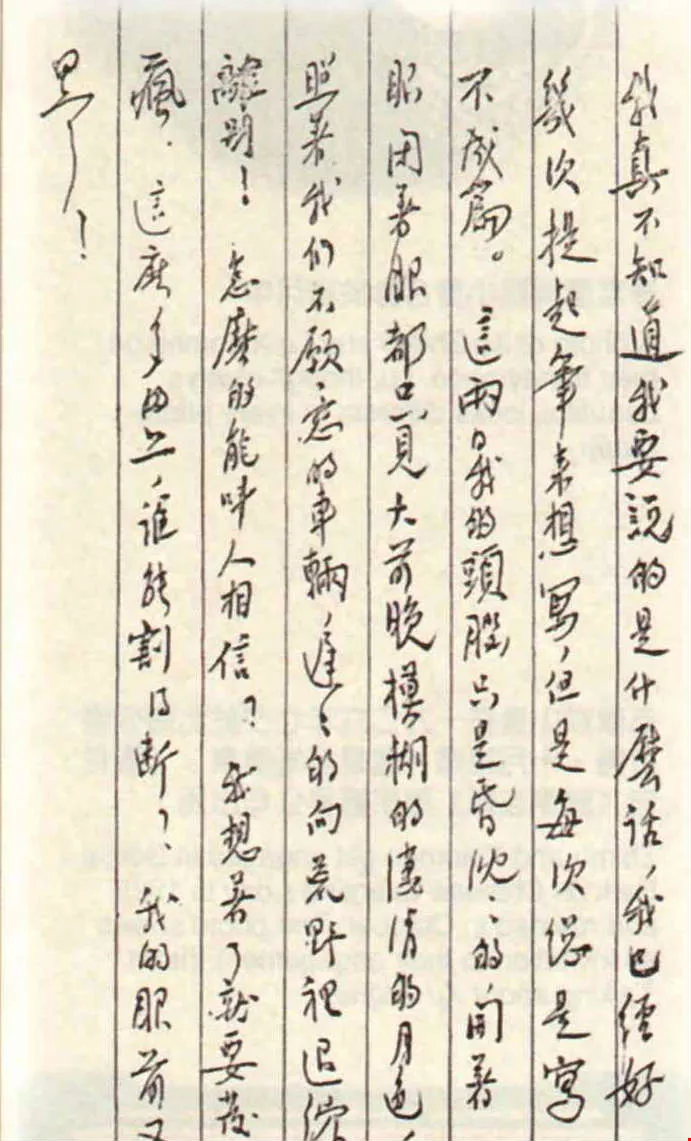 我真不知道我要説的是什麼話，我已經好
幾次提起筆來想寫，但是每次總是寫
不成篇。這兩日我的頭腦只是昏沈、的開著
眼閉著眼都只見大前晚模糊的淒清的月色，
照着我们不願意的車輛，遲、的向荒野裡退縮
離别！怎麼的能叫人相信？我想着了就要發
瘋．這麽多的丝，誰能割得断？我的眼前又
黑了！